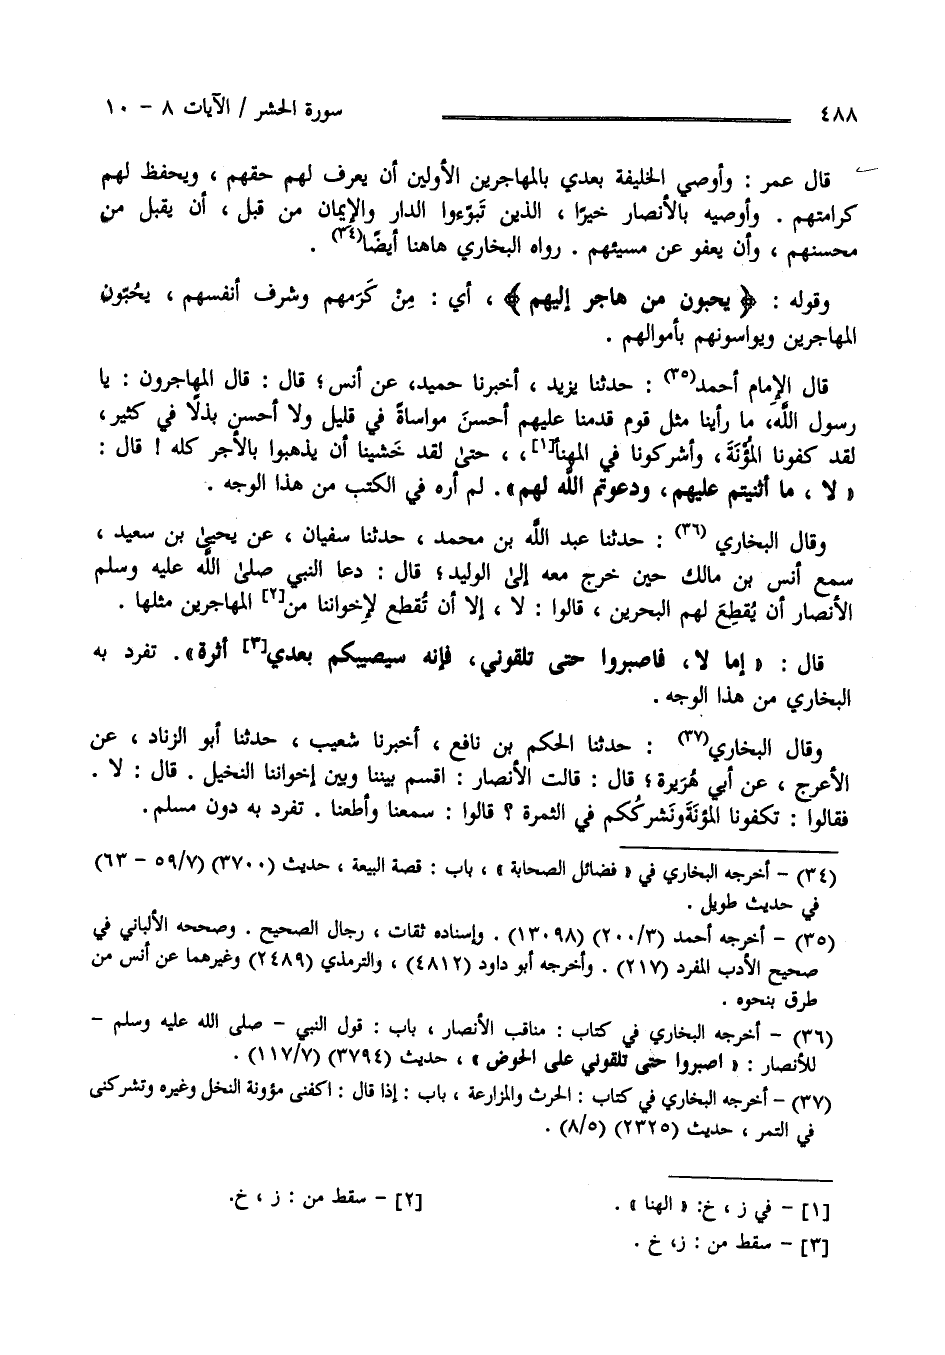 ٤٨٨ سورة الحشر / الآيات ٨ - ١٠
قال عمر : وأوصي الخليفة بعدي بالمهاجرين الأولين أن يعرف لهم حقهم ، ويحفظ لهم
كرامتهم . وأوصيه بالأنصار خيرًا ، الذين تَبوّءوا الدار والإيمان من قبل ، أن يقبل من
محسنهم ، وأن يعفو عن مسيئهم . رواه البخاري هاهنا أيضًا(٣٤) .
وقوله : ﴿ يحبون من هاجر إليهم ﴾ ، أي : مِنْ كَرَمهم وشرف أنفسهم ، يحُبّون
المهاجرين ويواسونهم بأموالهم .
قال الإمام أحمد(٣٥) : حدثنا يزيد ، أخبرنا حميد، عن أنس؛ قال : قال المهاجرون : يا
رسول اللَّه، ما رأينا مثل قوم قدمنا عليهم أحسنَ مواساةً في قليل ولا أحسن بذلًا في كثير،
لقد كفونا المُؤْنَةَ ، وأشركونا في المهنأ[١]، ، حتىٰ لقد خَشينا أن يذهبوا بالأجر كله ! قال :
« لا ، ما أثنيتم عليهم، ودعوتم اللَّه لهم». لم أره في الكتب من هذا الوجه .
وقال البخاري (٣٦) : حدثنا عبد اللَّه بن محمد ، حدثنا سفيان ، عن يحيىٰ بن سعيد ،
سمع أنس بن مالك حين خرج معه إلىٰ الوليد؛ قال : دعا النبي صلىٰ اللَّه عليه وسلم
الأنصار أن يُقطِعَ لهم البحرين ، قالوا : لا ، إلا أن تُقطع لإخواننا من[٢] المهاجرين مثلها .
قال : « إما لا، فاصبروا حتى تلقوني، فإنه سيصيبكم بعدي[٣] أثرة». تفرد به
البخاري من هذا الوجه .
وقال البخاري(٣٧) : حدثنا الحكم بن نافع ، أخبرنا شعيب ، حدثنا أبو الزناد ، عن
الأعرج ، عن أبي هُرَيرة؛ قال : قالت الأنصار : اقسم بيننا وبين إخواننا النخيل . قال : لا .
فقالوا : تكفونا المؤنَةَ ونَشركُكم في الثمرة ؟ قالوا : سمعنا وأطعنا . تفرد به دون مسلم.
(٣٤) - أخرجه البخاري في « فضائل الصحابة » ، باب : قصة البيعة ، حديث (٣٧٠٠) (٥٩/٧ - ٦٣)
في حديث طويل .
(٣٥) - أخرجه أحمد (٢٠٠/٣) (١٣٠٩٨) . وإسناده ثقات ، رجال الصحيح . وصححه الألباني في
صحيح الأدب المفرد (٢١٧) . وأخرجه أبو داود (٤٨١٢) ، والترمذي (٢٤٨٩) وغيرهما عن أنس من
طرق بنحوه .
(٣٦) - أخرجه البخاري في كتاب : مناقب الأنصار ، باب : قول النبي - صلى الله عليه وسلم -
للأنصار : « اصبروا حتى تلقوني على الحوض » ، حديث (٣٧٩٤) (١١٧/٧) .
(٣٧) - أخرجه البخاري في كتاب : الحرث والمزارعة ، باب : إذا قال : اكفنى مؤونة النخل وغيره وتشركنى
في التمر ، حديث (٢٣٢٥) (٨/٥) .
[١] - في ز ، خ: « الهنا » . [٢] - سقط من : ز ، خ.
[٣] - سقط من : ز، خ .